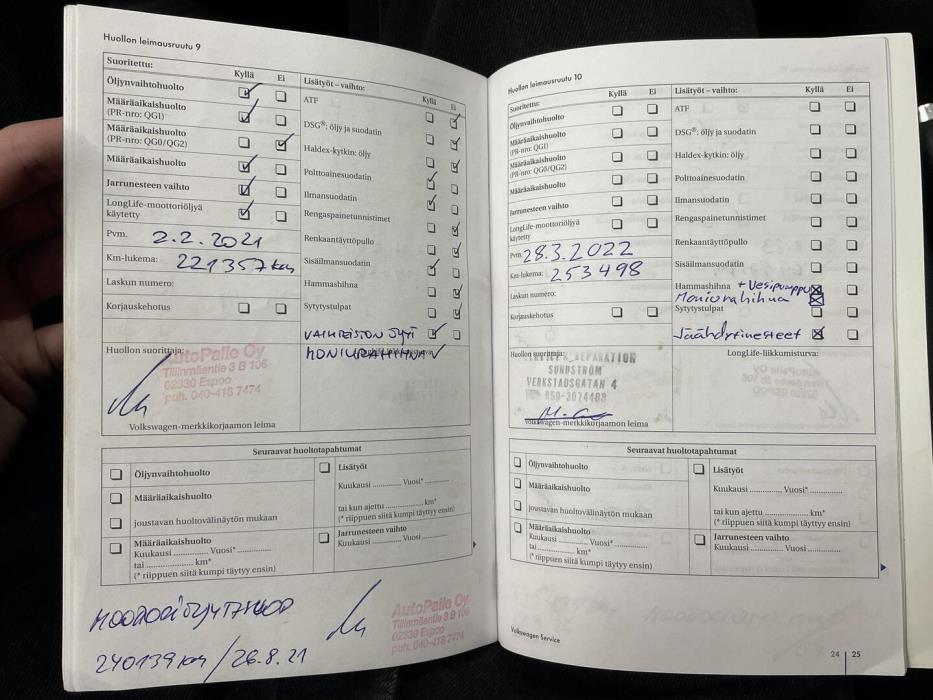 Huollon leimausruutu 9
Suoritettu:
Kyllä
Ei
Öljynvaihtohuolto
Määräaikaishuolto
(PR-nro: QG1)
Määräaikaishuolto
(PR-nro: QG0/QG2)
Määräaikaishuolto
Jarrunesteen vaihto
LongLife-moottoriöljyä
käytetty
Pvm. 2.2.2021
Km-lukema: 221357 km
Laskun numero:
Korjauskehotus
Lisätyöt – vaihto:
Kyllä
Ei
ATF
DSG®: öljy ja suodatin
Haldex-kytkin: öljy
Polttoainesuodatin
Ilmansuodatin
Rengaspainetunnistimet
Renkaantäyttöpullo
Sisäilmansuodatin
Hammashihna
Sytytystulpat
VAIHTEISTON ÖLJY
MONIURAHIHNA
Huollon suorittaja:
AutoPalle Oy
Tillinmäentie 3 B 106
02330 Espoo
puh. 040-418 7474
Volkswagen-merkkikorjaamon leima
Seuraavat huoltotapahtumat
Öljynvaihtohuolto
Määräaikaishuolto
joustavan huoltovälinäytön mukaan
Määräaikaishuolto
Kuukausi ............. Vuosi* .............
tai ............. km*
(* riippuen siitä kumpi täytyy ensin)
Lisätyöt
Kuukausi ............. Vuosi* .............
tai kun ajettu ............. km*
(* riippuen siitä kumpi täytyy ensin)
Jarrunesteen vaihto
Kuukausi ............. Vuosi .............
240139 km / 26.8.21
AutoPalle Oy
Tillinmäentie 3 B 106
02330 Espoo
puh. 040-418 7474
Huollon leimausruutu 10
Suoritettu:
Kyllä
Ei
Öljynvaihtohuolto
Määräaikaishuolto
(PR-nro: QG1)
Määräaikaishuolto
(PR-nro: QG0/QG2)
Määräaikaishuolto
Jarrunesteen vaihto
LongLife-moottoriöljyä
käytetty
Pvm. 28.3.2022
Km-lukema: 253498
Laskun numero:
Korjauskehotus
Lisätyöt – vaihto:
Kyllä
Ei
ATF
DSG®: öljy ja suodatin
Haldex-kytkin: öljy
Polttoainesuodatin
Ilmansuodatin
Rengaspainetunnistimet
Renkaantäyttöpullo
Sisäilmansuodatin
Hammashihna + Vesipumppu
Moniurahihna
Sytytystulpat
Jäähdytinesteet
Huollon suorittaja:
REPARATION
SUNDSTRÖM
VERKSTADSGATAN 4
050-3074408
Volkswagen-merkkikorjaamon leima
LongLife-liikkumisturva:
Seuraavat huoltotapahtumat
Öljynvaihtohuolto
Määräaikaishuolto
joustavan huoltovälinäytön mukaan
Määräaikaishuolto
Kuukausi ............. Vuosi* .............
tai ............. km*
(* riippuen siitä kumpi täytyy ensin)
Lisätyöt
Kuukausi ............. Vuosi* .............
tai kun ajettu ............. km*
(* riippuen siitä kumpi täytyy ensin)
Jarrunesteen vaihto
Kuukausi ............. Vuosi .............
Volkswagen Service
24 | 25